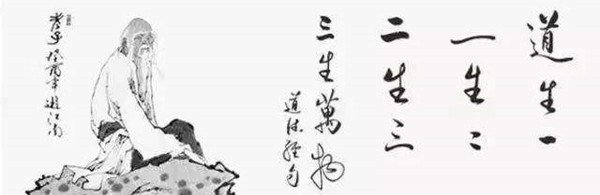 道生一
一生二
二生三
三生萬物
道德經句
老子